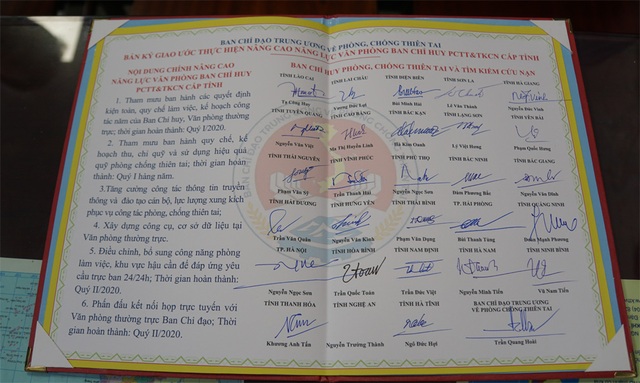 BAN CHỈ ĐẠO TRUNG ƯƠNG VỀ PHÒNG, CHỐNG THIÊN TAI
BẢN KÝ GIAO ƯỚC THỰC HIỆN NÂNG CAO NĂNG LỰC VĂN PHÒNG BAN CHỈ HUY PCTT&TKCN CẤP TỈNH
NỘI DUNG CHÍNH NÂNG CAO
NĂNG LỰC VĂN PHÒNG BAN CHỈ HUY
PCTT&TKCN CẤP TỈNH
1. Tham mưu ban hành các quyết định
kiện toàn, quy chế làm việc, kế hoạch công
tác năm của Ban Chỉ huy, Văn phòng thường
trực; thời gian hoàn thành: Quý I/2020.
2. Tham mưu ban hành quy chế, kế
hoạch thu, chi quỹ và sử dụng hiệu quả
quỹ phòng chống thiên tai; thời gian hoàn
thành: Quý I hàng năm.
3.Tăng cường công tác thông tin truyền
thông và đào tạo cán bộ, lực lượng xung kích
phục vụ công tác phòng, chống thiên tai;
4. Xây dựng công cụ, cơ sở dữ liệu tại
Văn phòng thường trực.
5. Điều chỉnh, bổ sung nâng phòng
làm việc, khu vực hậu cần để đáp ứng yêu
cầu trực ban 24/24h; Thời gian hoàn thành:
Quý II/2020.
6. Phấn đấu kết nối họp trực tuyến với
Văn phòng thường trực Ban Chỉ đạo; Thời
gian hoàn thành: Quý II/2020.
BAN CHỈ HUY PHÒNG, CHỐNG THIÊN TAI VÀ TÌM KIẾM CỨU NẠN
TỈNH LÀO CAI TỈNH LAI CHÂU TỈNH ĐIỆN BIÊN TỈNH SƠN LA TỈNH HÀ GIANG
Tạ Công Huy Vương Đức Lợi Bùi Minh Hải Lê Văn Thành Nguyễn Đức Vinh
TỈNH TUYÊN QUANG TỈNH CAO BẰNG TỈNH BẮC KẠN TỈNH LẠNG SƠN TỈNH YÊN BÁI
Nguyễn Văn Việt Mã Thị Huyền Linh Hà Kim Oanh Lý Việt Hưng Phạm Quốc Hưng
TỈNH THÁI NGUYÊN TỈNH VĨNH PHÚC TỈNH PHÚ THỌ TỈNH BẮC NINH TỈNH BẮC GIANG
Phạm Văn Sỹ Trần Thanh Hải Nguyễn Ngọc Sơn Đàm Phương Bắc Nguyễn Văn Đình
TỈNH HẢI DƯƠNG TỈNH HƯNG YÊN TỈNH THÁI BÌNH TP. HẢI PHÒNG TỈNH QUẢNG NINH
Trần Văn Quân Nguyễn Văn Kính Phạm Văn Dụng Bùi Thanh Tùng Doãn Mạnh Phương
TP. HÀ NỘI TỈNH HÒA BÌNH TỈNH NAM ĐỊNH TỈNH HÀ NAM TỈNH NINH BÌNH
Nguyễn Ngọc Sơn Trần Quốc Toàn Trần Đức Việt Nguyễn Minh Tiến Vũ Nam Tiến
TỈNH THANH HÓA TỈNH NGHỆ AN TỈNH HÀ TĨNH BAN CHỈ ĐẠO TRUNG ƯƠNG
VỀ PHÒNG CHỐNG THIÊN TAI
Khương Anh Tấn Nguyễn Trường Thành Ngô Đức Hợi Trần Quang Hoài